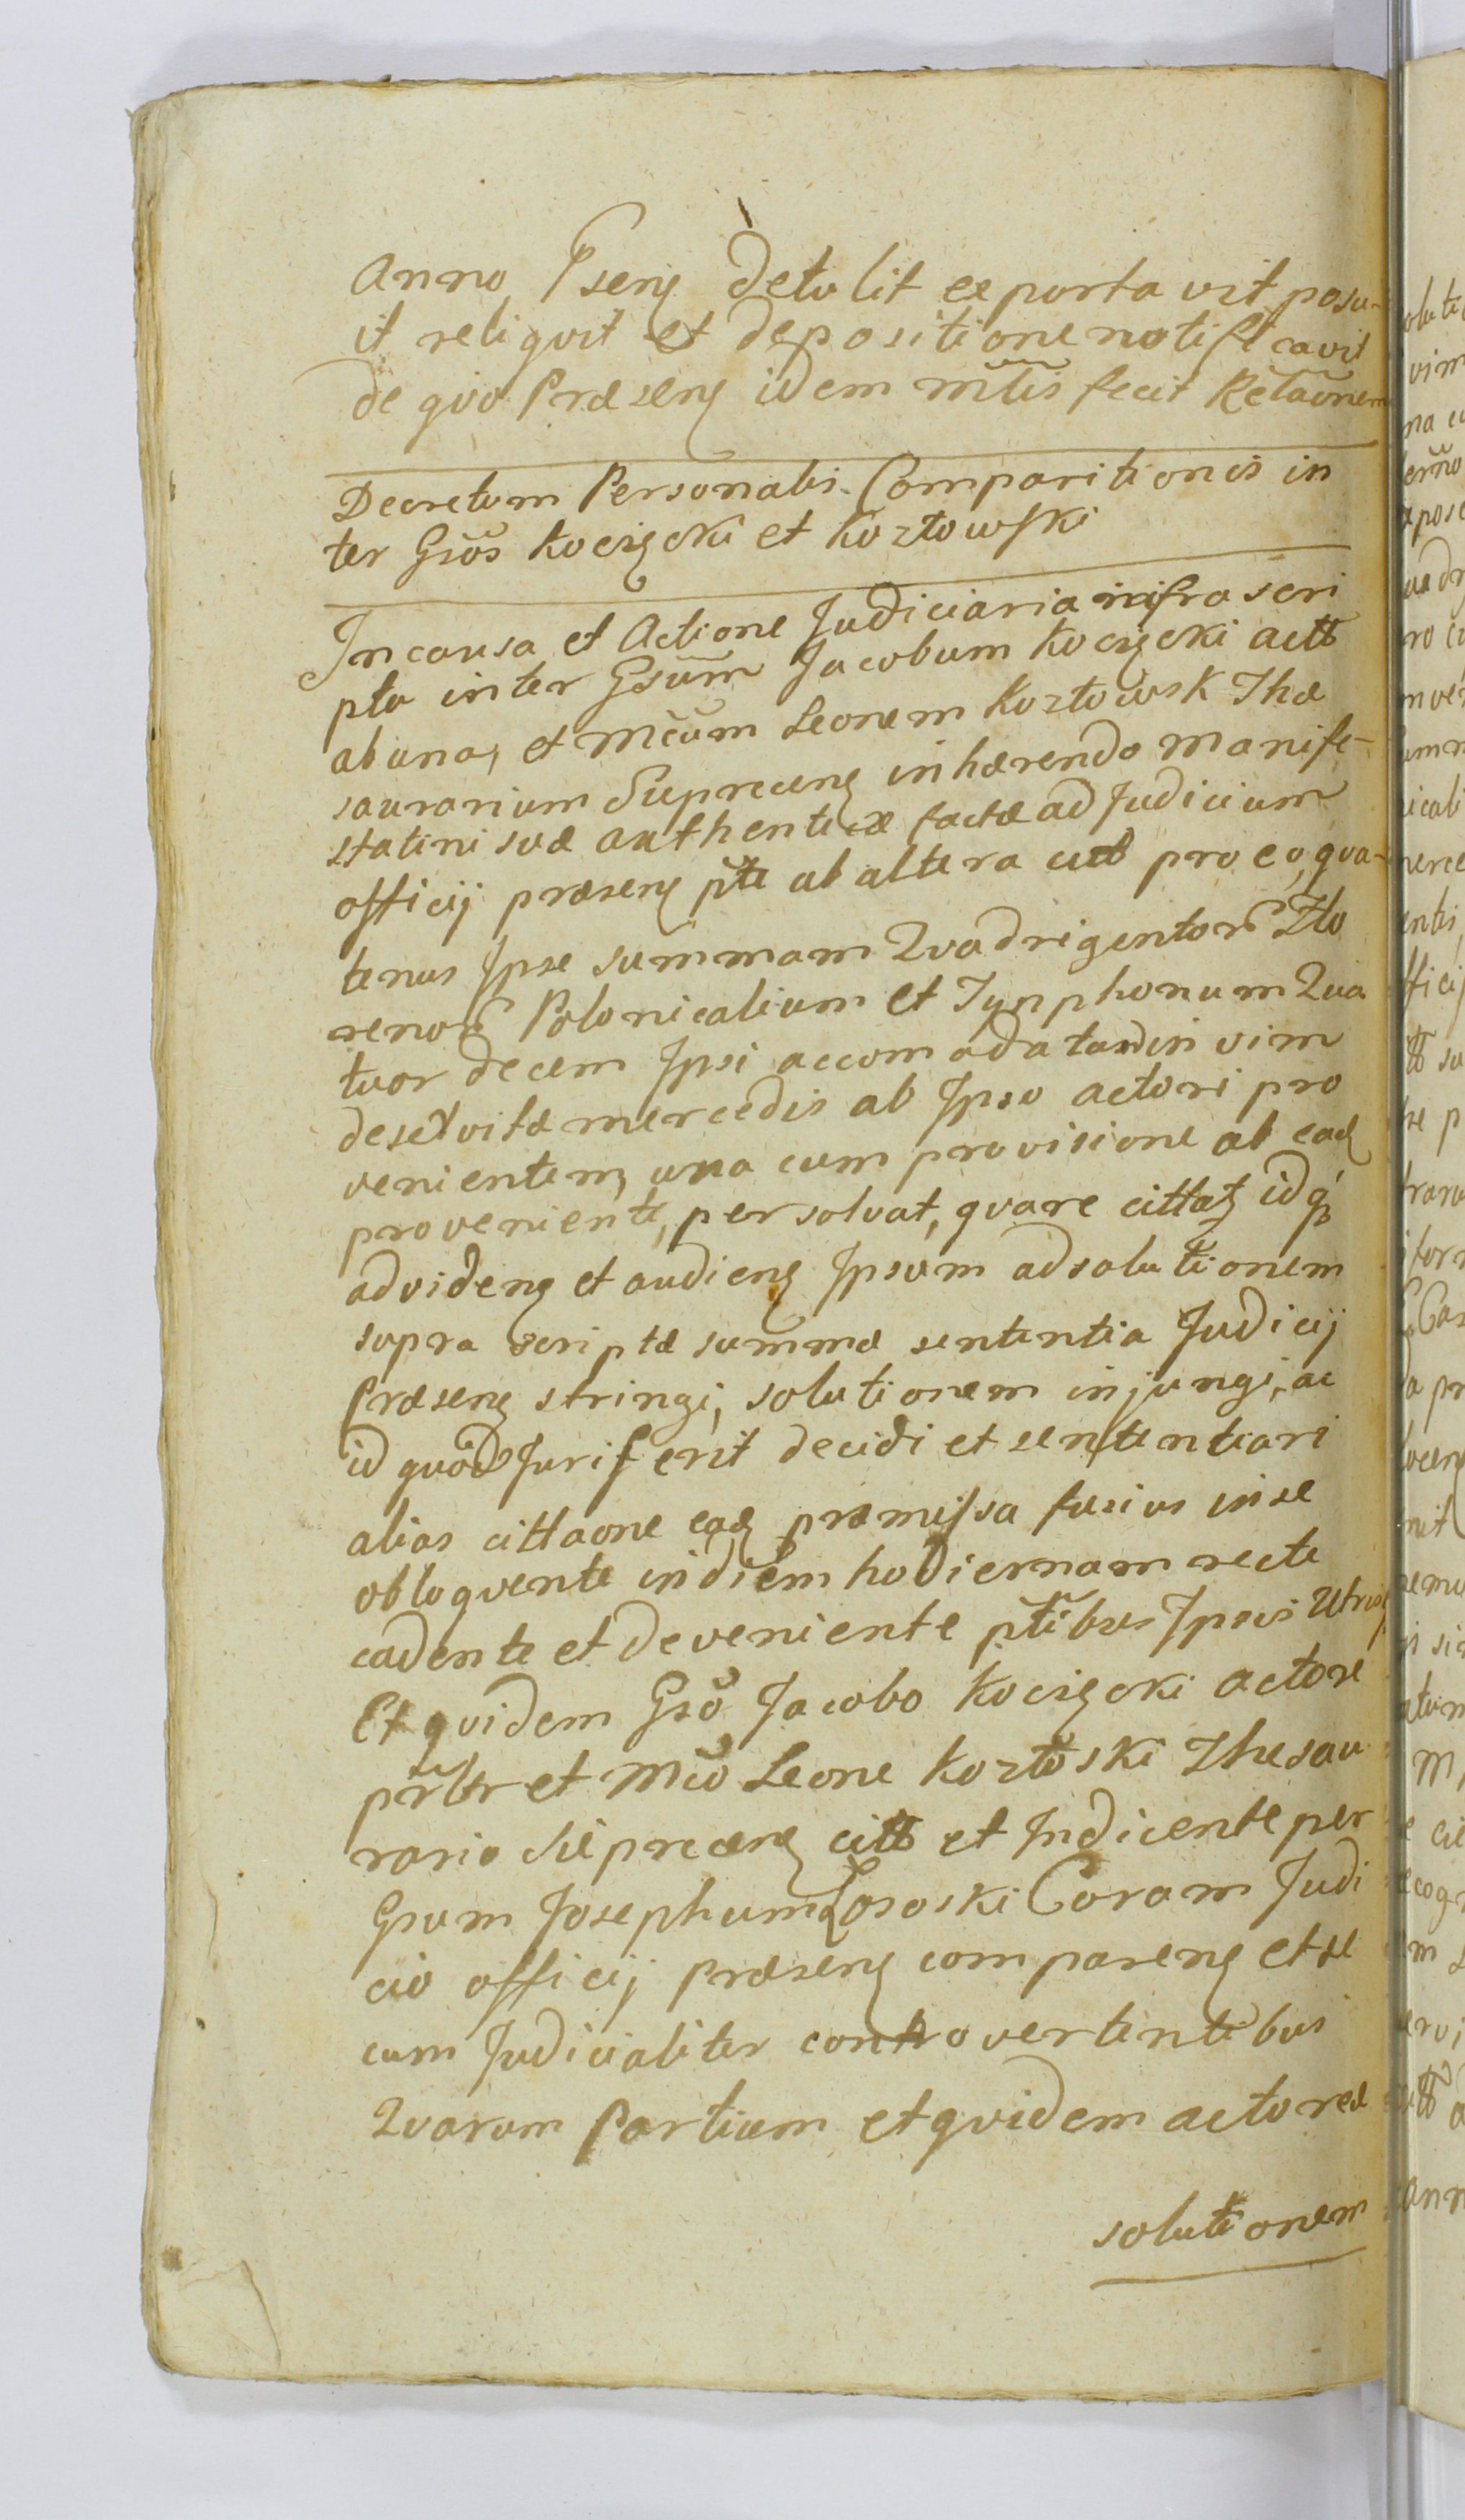 Anno Pseng detulit exportavit posu-
it reliqvit et depositione notificavit
de qvo Præseng idem mĩtis fecit Relãonem
Decretum Personalis Comparitionis in
ter Gsõs Kocięcki et Kozłowski
In causa et Actione Judiciaria infra scri
pta inter Gsũm Jacobum Kocięcki actt
ab una, et Mcũm Leonem Kozłowsk The
saurarium Supreceng inhærendo Manife-
statini suæ authenticæ factæ ad Judicium
officij præseng pte ab altera citt pro eo, qva-
tenus Ipse summam Qvadrigentor Flo
renor Polonicalium et Tynphonum Qua
tuor decem Ipsi accomodatam in vim
deservitæ mercedis ab Ipso actori pro
venientem, una cum provisione ab eadg
proveniente, persolvat, qvare cittatg idq
ad videng et audieng Ipsum ad solutionem
supra scriptæ summæ sententia Judicij
Præseng stringi, solutionem injungi, ac
id qvõd Juris erit decidi et sententiari
alias cittaone eadg præmissa fusius in se
obloqvente in diem hodiernam recte
cadente et deveniente ptibus Ipsis Utrisq
Et qvidem Gsõ Jacobo Kocięcki actore
prltr et Mcõ Leone Kozłoski Thesau
rario Supreceng citt et Indicente per
Gsum Josephum Łososki Coram Judi
cio officij præseng compareng et se
cum Judicialiter controvertentibus
Qvarum Partium et qvidem actoreæ
solutionem